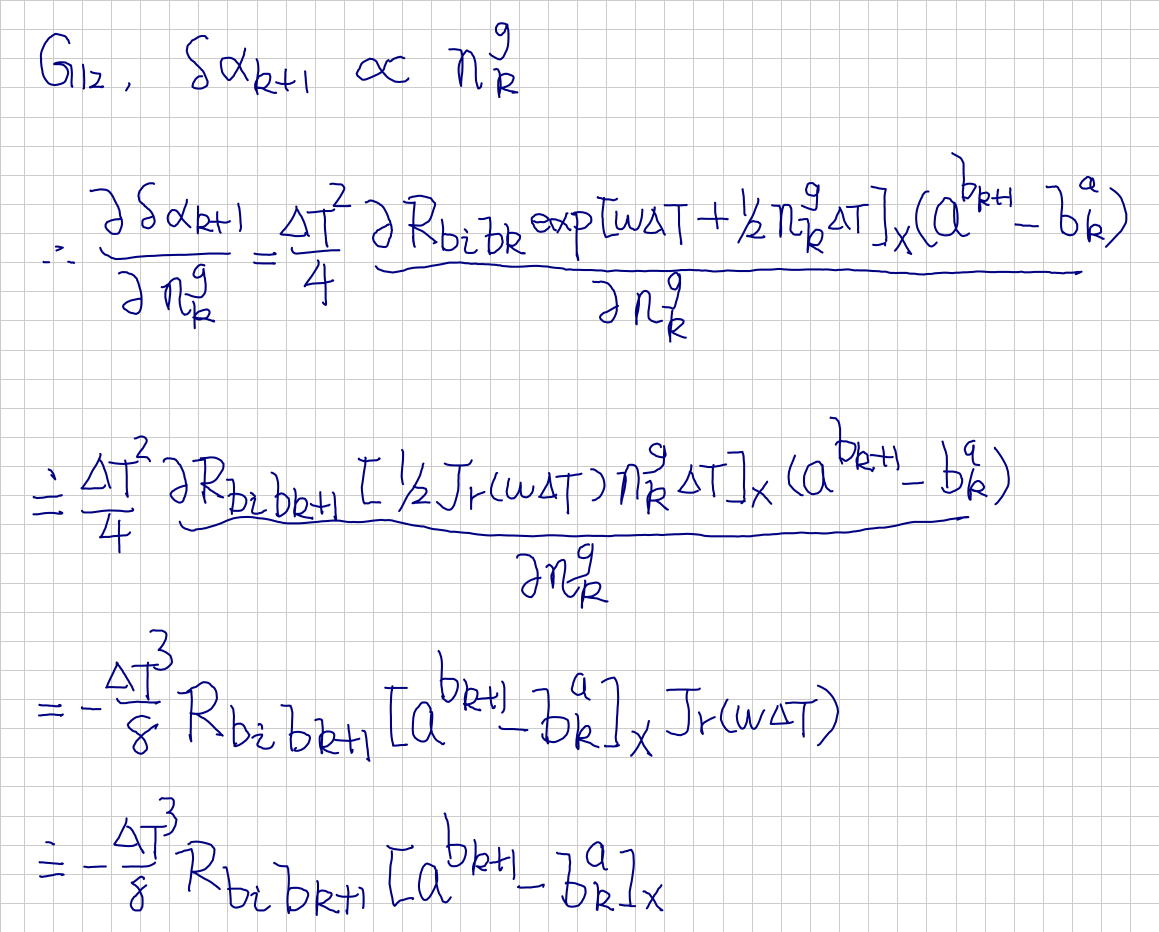 G₁₂, δα_{k+1} ∝ n_k^g
∴ ∂δα_{k+1} / ∂n_k^g = ΔT²/4 ∂R_{b_i b_k} exp[wΔT + ½ n_k^g ΔT]_× (a^{b_{k+1}} - b_k^a) / ∂n_k^g
≐ ΔT²/4 ∂R_{b_i b_{k+1}} [½ J_r(wΔT) n_k^g ΔT]_× (a^{b_{k+1}} - b_k^a) / ∂n_k^g
= - ΔT³/8 R_{b_i b_{k+1}} [a^{b_{k+1}} - b_k^a]_× J_r(wΔT)
≐ - ΔT³/8 R_{b_i b_{k+1}} [a^{b_{k+1}} - b_k^a]_×